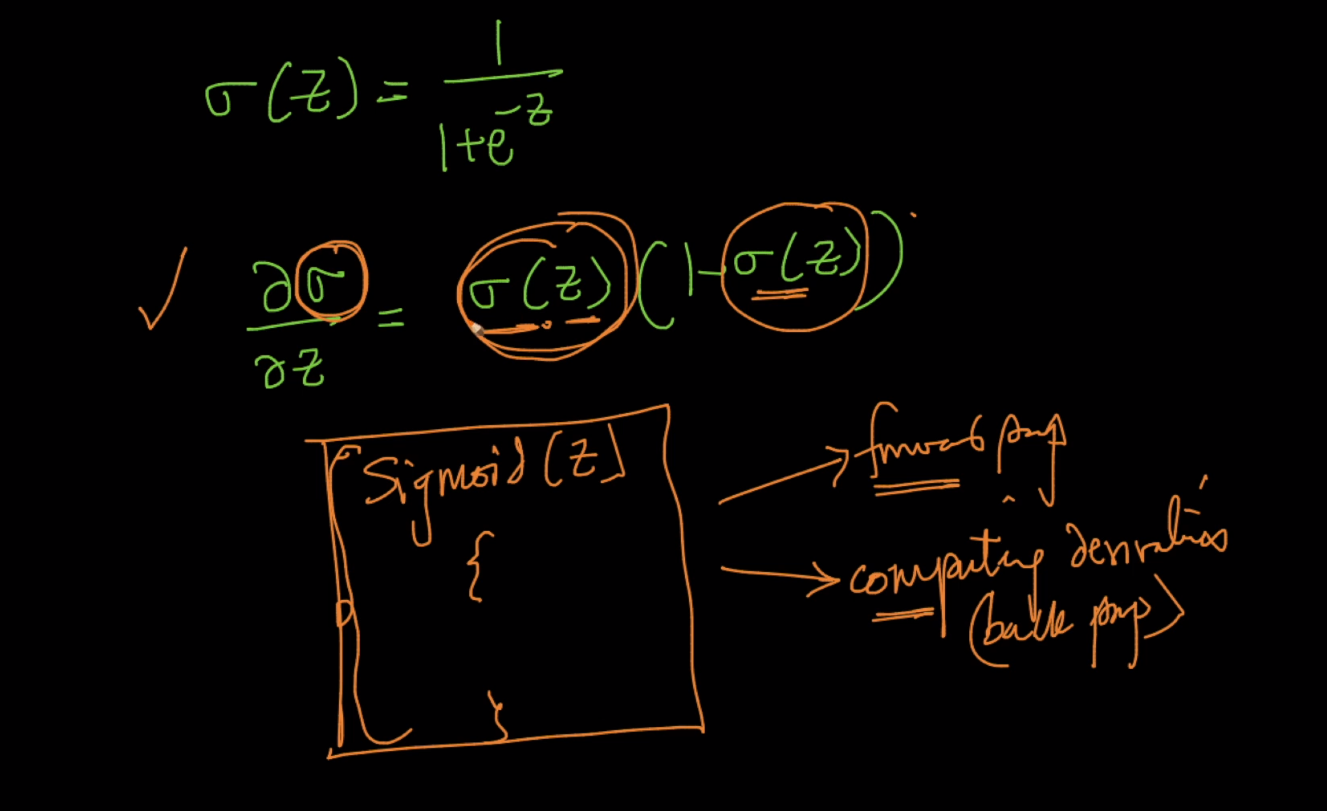 σ(z) = 1/(1+e^-z)
∂σ/∂z = σ(z)(1-σ(z))
Sigmoid(z)
{
}
forward prop
computing derivatives
(back prop)